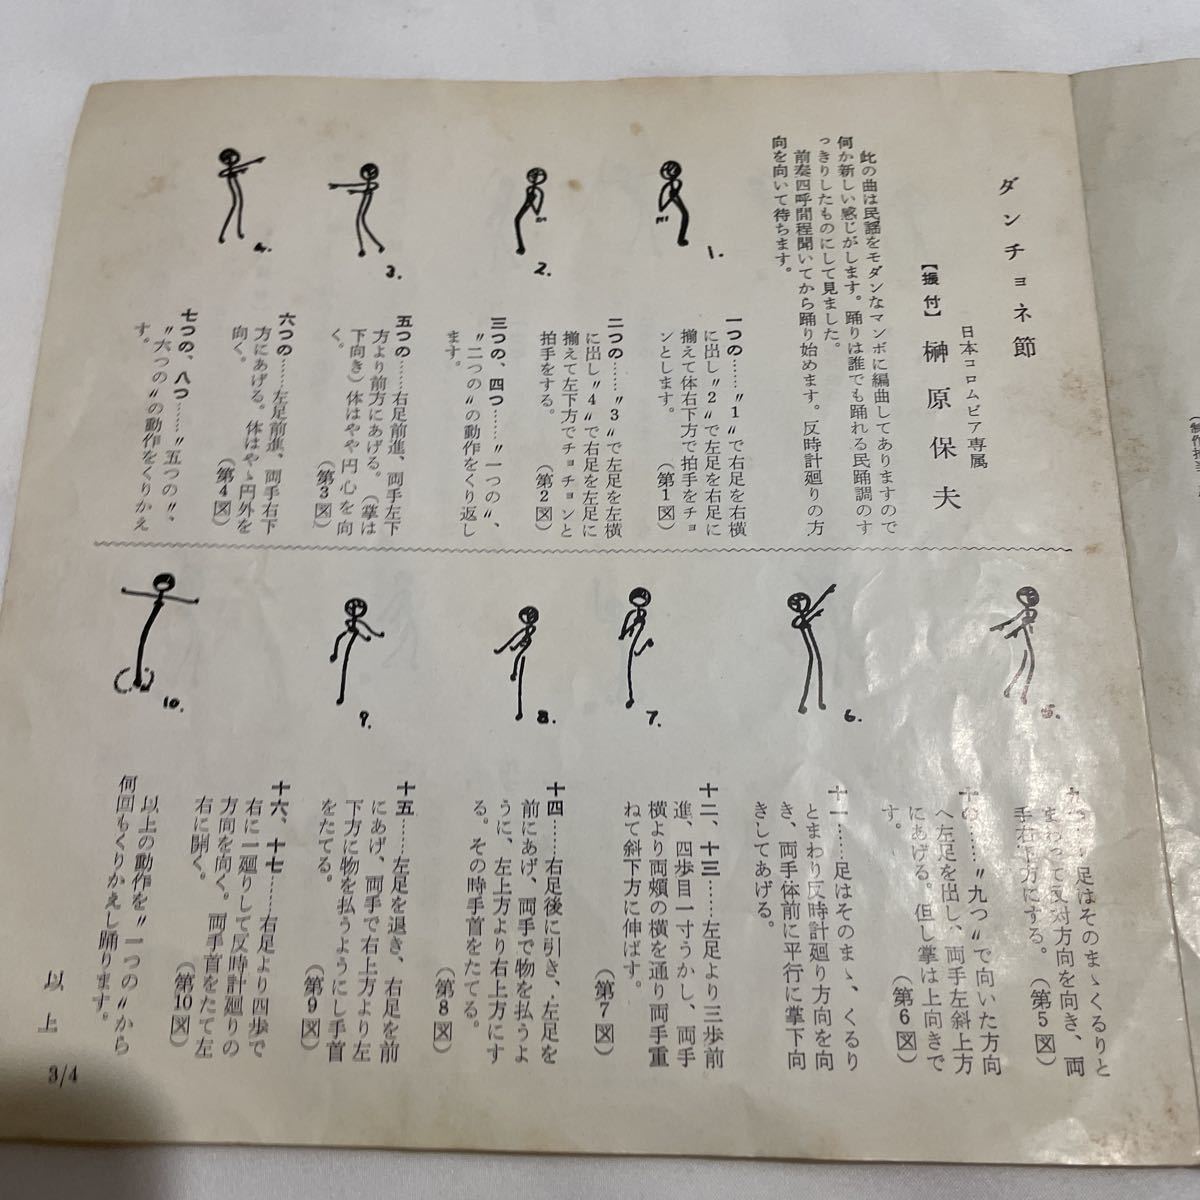 ダンチョネ節
日本コロムビア専属
【振付】 榊原保夫
此の曲は民謡をモダンなマンボに編曲してありますので
何か新しい感じがします。踊りは誰でも踊れる民踊調のす
っきりしたものにして見ました。
前奏四呼間程聞いてから踊り始めます。反時計廻りの方
向を向いて待ちます。
1.
2.
3.
4.
一つの……〃1〃で右足を右横
に出し〃2〃で左足を右足に
揃えて体右下方で拍手をチョ
ンとします。
(第1図)
二つの……〃3〃で左足を左横
に出し〃4〃で右足を左足に
揃えて左下方でチョチョンと
拍手をする。
(第2図)
三つの、四つ……〃一つの〃、
〃二つの〃の動作をくり返し
ます。
五つの……右足前進、両手左下
方より前方にあげる。(掌は
下向き)体はやや円心を向
く。
(第3図)
六つの……左足前進、両手右下
方にあげる。体はやゝ円外を
向く。
(第4図)
七つの、八つ……〃五つの〃、
〃六つの〃の動作をくりかえ
す。
5.
6.
7.
8.
9.
10.
足はそのまゝくるりと
まわって反対方向を向き、両
手右下方にする。
(第5図)
十の……〃九つ〃で向いた方向
へ左足を出し、両手左斜上方
にあげる。但し掌は上向きで
す。
(第6図)
十一……足はそのまゝ、くるり
とまわり反時計廻り方向を向
き、両手体前に平行に掌下向
きしてあげる。
十二、十三……左足より三歩前
進、四歩目一寸うかし、両手
横より両頬の横を通り両手重
ねて斜下方に伸ばす。
(第7図)
十四……右足後に引き、左足を
前にあげ、両手で物を払うよ
うに、左上方より右上方にす
る。その時手首をたてる。
(第8図)
十五……左足を退き、右足を前
にあげ、両手で右上方より左
下方に物を払うようにし手首
をたてる。
(第9図)
十六、十七……右足より四歩で
右に一廻りして反時計廻りの
方向を向く。両手首をたて左
右に開く。
(第10図)
以上の動作を〃一つの〃から
何回もくりかえし踊ります。
以上
3/4